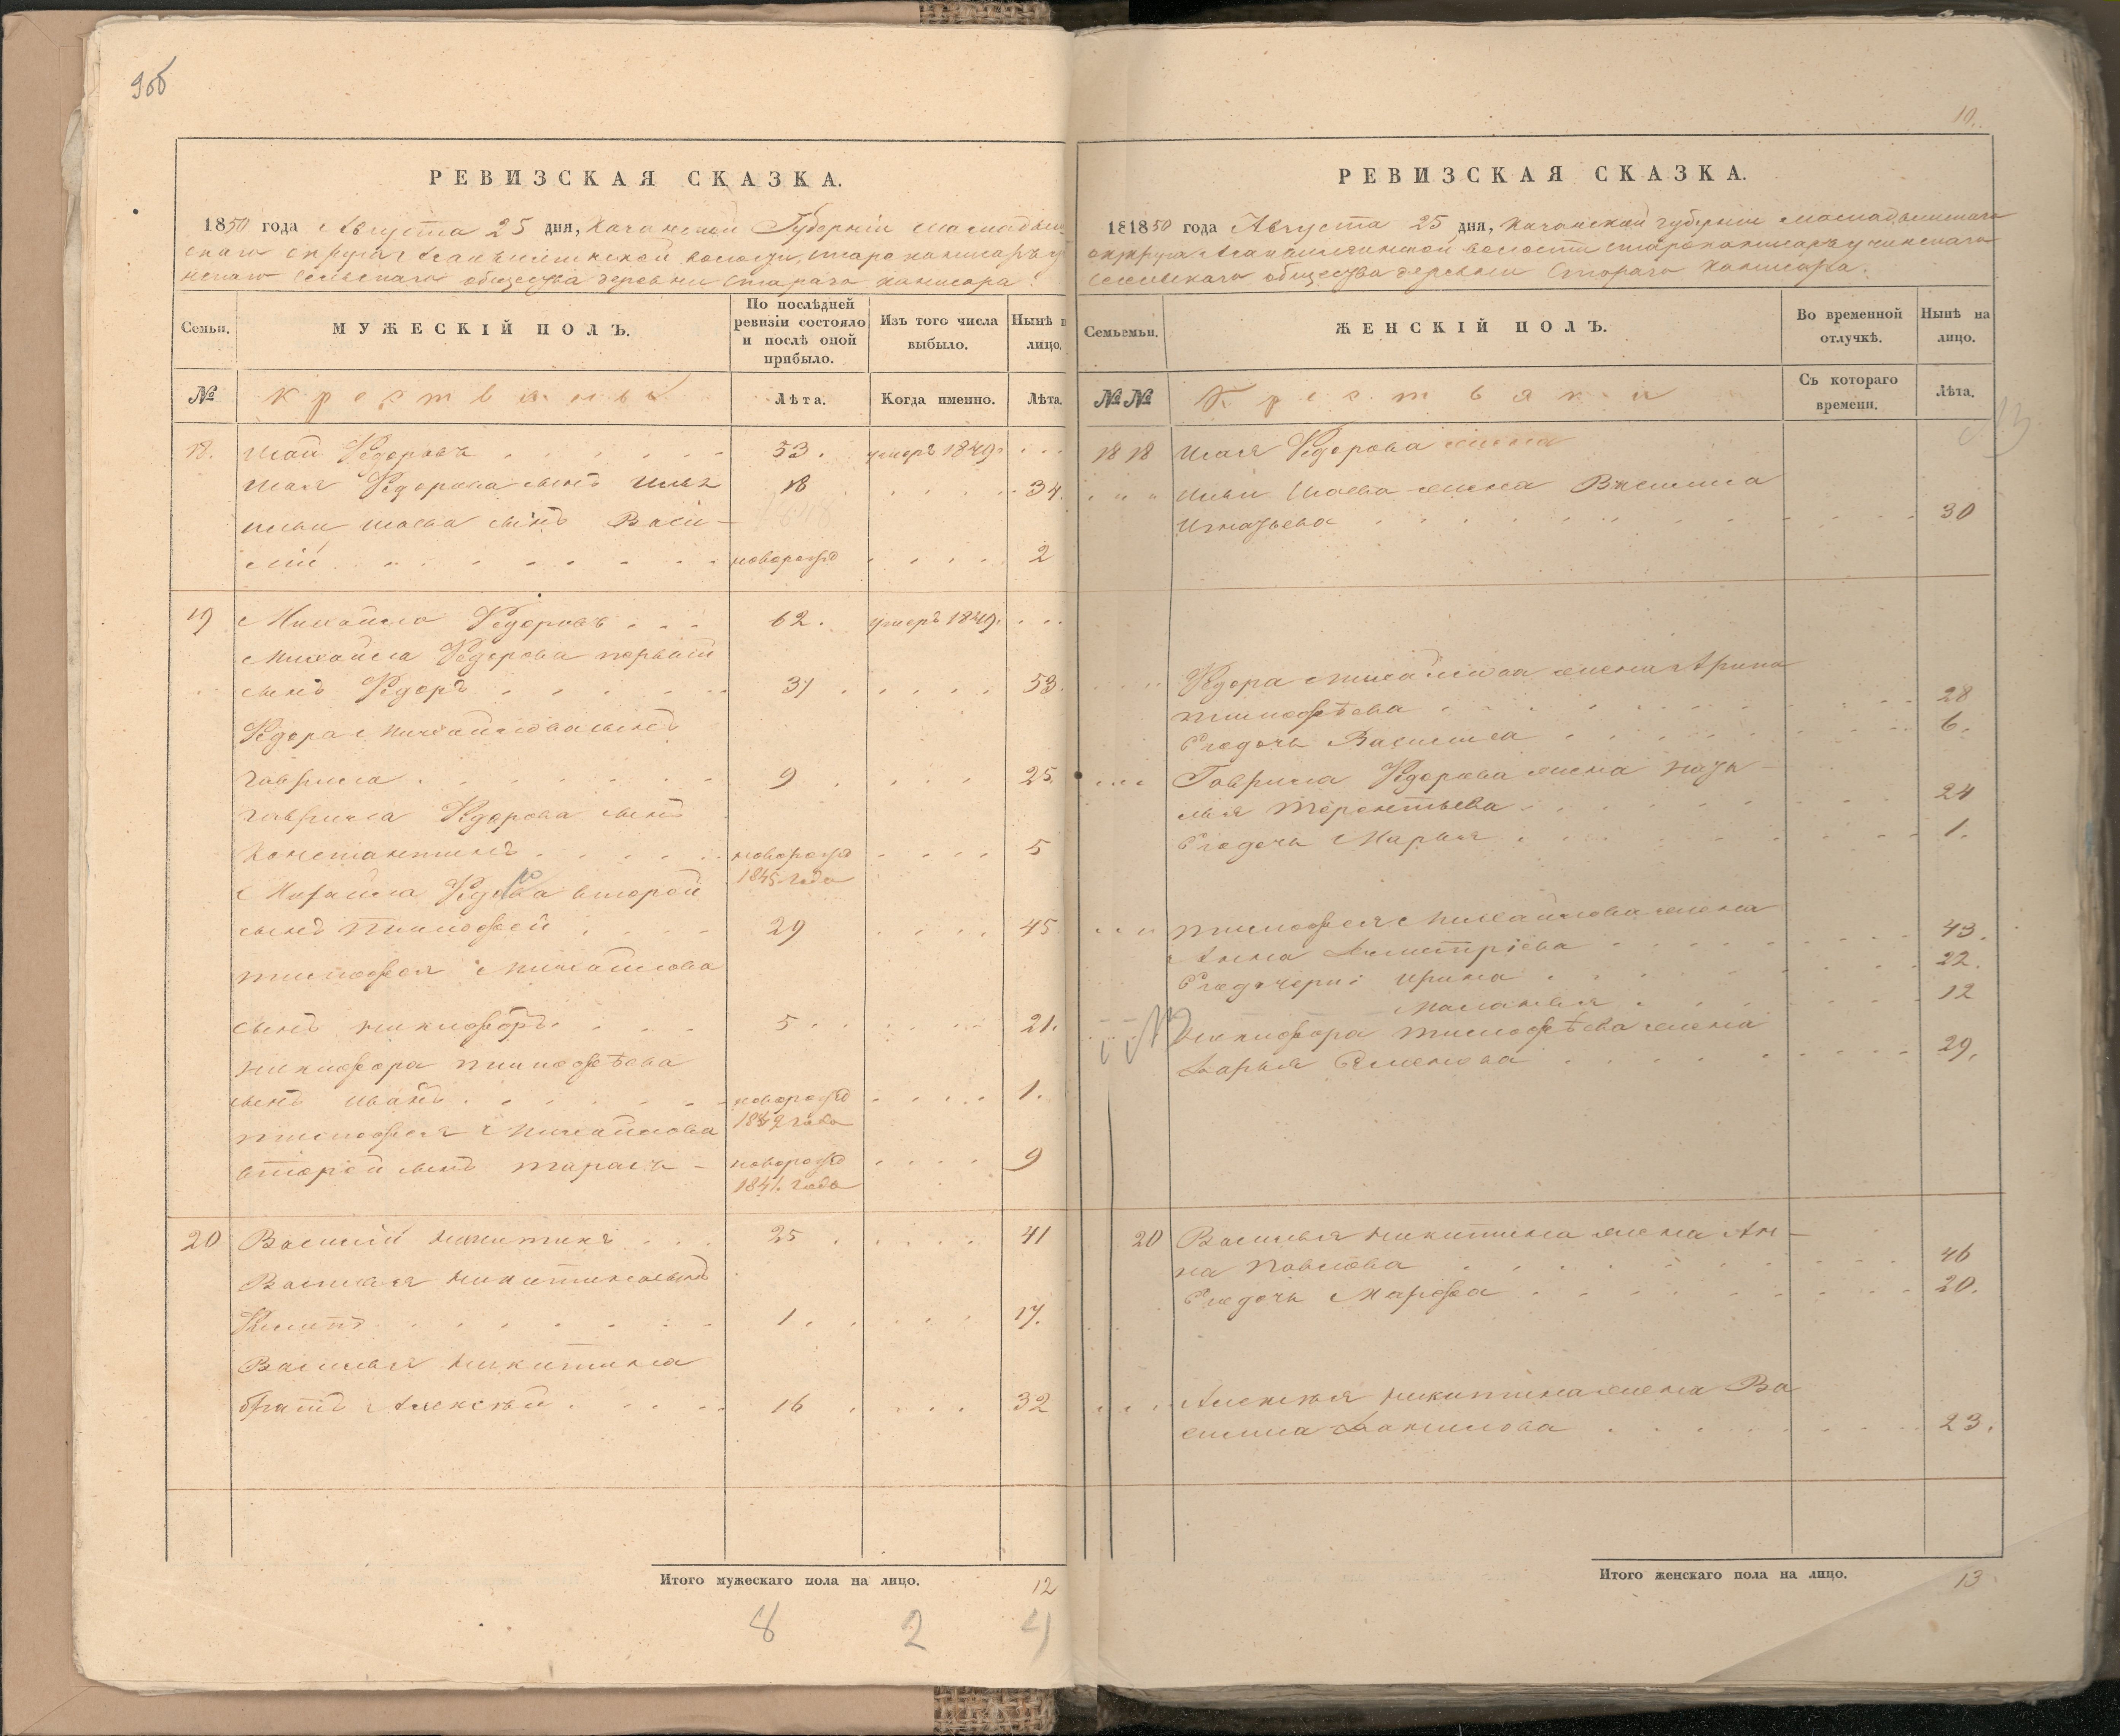 9об
РЕВИЗСКАЯ СКАЗКА.
1850 года Августа 25 дня, Казанской Губерніи Мамадыш
скаго округа волости,
Сельскаго общества деревни Стараго
Семьи.
МУЖЕСКІЙ ПОЛЪ.
По послѣдней ревизіи состояло и послѣ оной прибыло.
Изъ того числа выбыло.
Нынѣ н лицо.
№
Крестьяны
Лѣта.
Когда именно.
Лѣта.
18. Федоровъ 53. умеръ 1849.
Федорова сынъ Илья 18 34.
Ильи сынъ Васи-
лій новорожд 2
19 Михайла Федоровъ 62. умеръ 1849.
Михайла Федорова первый
сынъ Федоръ 37 53.
Федора Михайлова сынъ
Гаврила 9 25.
Гаврила Федорова сынъ
Константинъ новорожд 5
1845 года
Михайла второй
сынъ Тимофей 29 45
Тимофея Михайлова
сынъ Никифоръ 5 21.
Никифора Тимофѣева
сынъ Иванъ новорожд 1.
1849 года
Тимофея Михайлова
второй сынъ Тарасъ - новорожд 9
1841. года
20 Василій Никитинъ 25 41
Василья Никитина сынъ
Филипъ 1 17.
Василья Никитина
братъ Алексѣй 16 32
Итого мужескаго пола на лицо. 12
8 2 4
10.
РЕВИЗСКАЯ СКАЗКА.
181850 года Августа 25 дня, Казанской губерніи Мамадышскаго
округа волости
Сельскаго общества деревни Стараго
Семьемьи.
ЖЕНСКІЙ ПОЛЪ.
Во временной отлучкѣ.
Нынѣ на лицо.
№ №
Крестьянки
Съ котораго времени.
Лѣта.
18 18 Федорова жена
Ильи жена Василиса
Игнатьева 30
Федора Михайлова жена Арина
Тимофѣева 28
Ея дочь Василиса 6.
Гаврила Федорова жена
Терентьева 24
Ея дочь Марья 1.
Тимофея Михайлова жена
Анна Дмитріева 43.
Ея дочери: Ирина 22.
Маланья 12
Никифора Тимофѣева жена
Дарья Семенова 29.
20 Василья Никитина жена Ан-
на Павлова 46
Ея дочь Марфа 20.
Алексѣя Никитина жена Ва
силиса Данилова 23.
Итого женскаго пола на лицо. 13